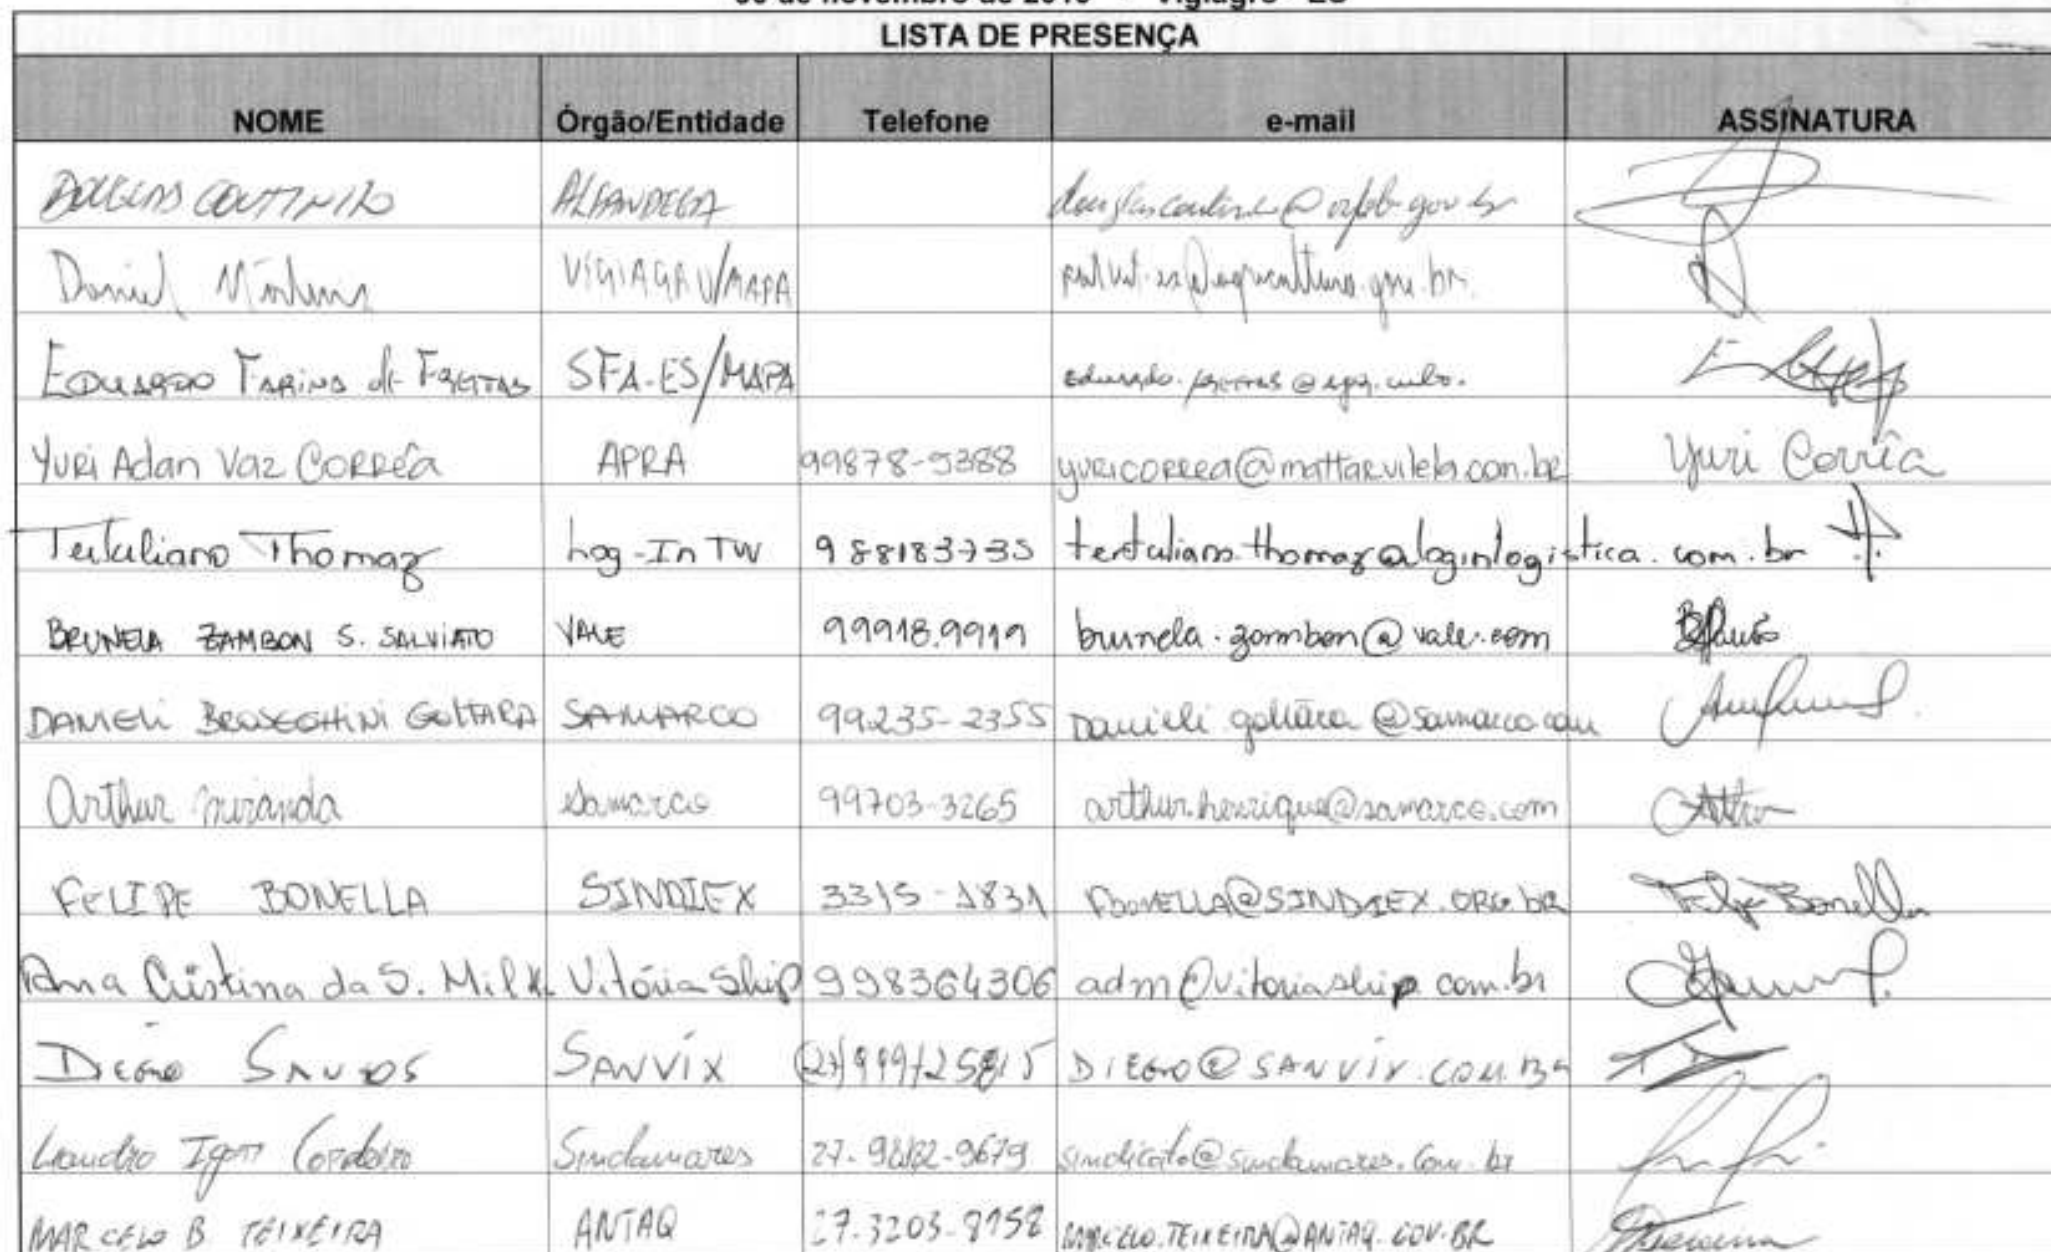 LISTA DE PRESENÇA
NOME Órgão/Entidade Telefone e-mail ASSINATURA
DOUGLAS COUTINHO ALFANDEGA
Daniel VIGIAGRO/MAPA
EDUARDO FARINA de FREITAS SFA-ES/MAPA
YURI Adan Vaz CORRÊa APRA 99878-9388 yuricorrea@mattarvilela.com.br Yuri Corrêa
Tertuliano Thomaz Log-In TVV 988183735 tertuliano.thomaz@loginlogistica.com.br
BRUNELA ZAMBON S. SALVIATO VALE 99918.9919 brunela.zambon@vale.com
DANIELI BROSEGHINI GOLTARA SAMARCO 99235-2355 Danieli.goltara@samarco.com
Arthur miranda Samarco 99703-3265 arthur.henrique@samarco.com
FELIPE BONELLA SINDIEX 3315-1831 FBONELLA@SINDIEX.ORG.bR Felipe Bonella
Ana Cristina da S. Vitória Ship 998364306 adm@vitoriaship.com.br
DIEGO SANTOS SANVIX DIEGO@SANVIX.COM.BR
Leandro Igor Cordeiro Sindamares sindicato@sindamares.com.br
MARCELO B TEIXEIRA ANTAQ 27.3203-8758 MARCELO.TEIXEIRA@ANTAQ.GOV.BR